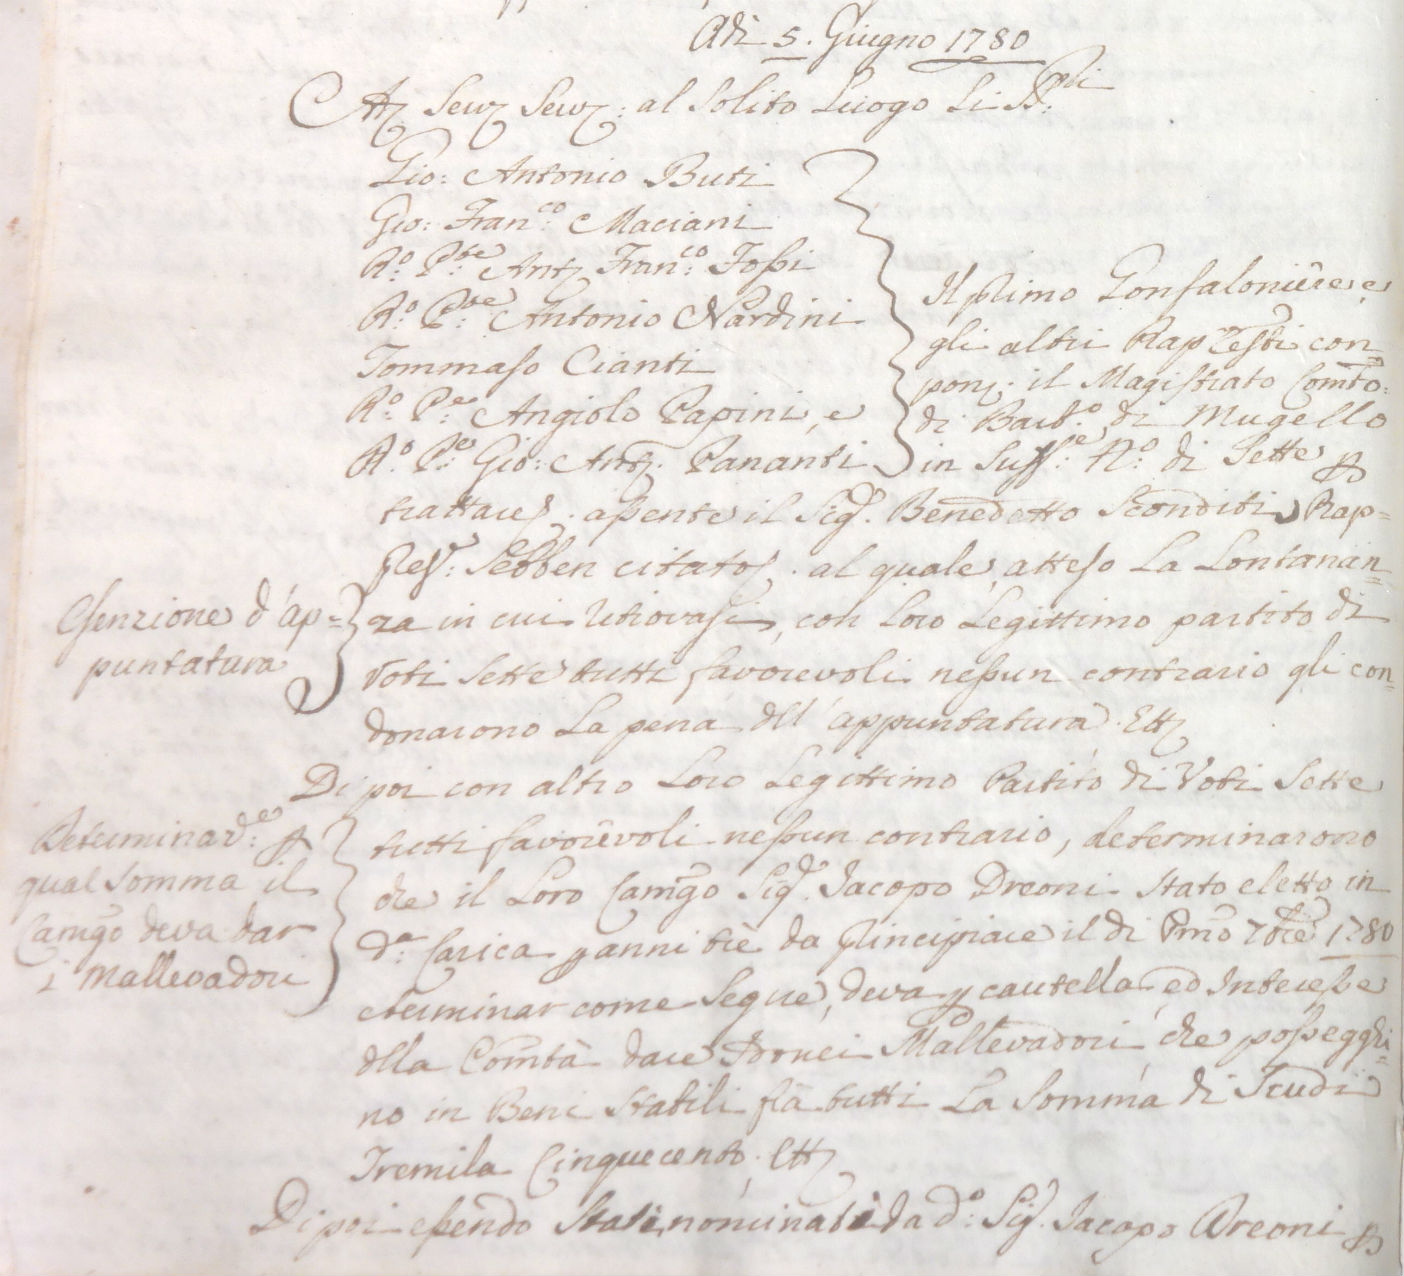 Adì 5. Giugno 1780
Att. Serv. Serv.: al Solito Luogo Li SS.ri
Gio: Antonio Buti
Gio: Fran.co Maciani
R.o P.te Ant. Fran.co Fossi
R.o P.te Antonio Nardini
Tommaso Cianti
R.o P.e Angiolo Papini, e
R.o P.e Gio: Ant. Pananti
Il primo Gonfaloniere, e
gli altri Rapresti con=
pon. il Magistrato Comto:
di Barb.o di Mugello
in Suff.e N.o di Sette p
trattare. assente il Sig.e Benedetto Sconditi Rap=
pres.: Sebben citato. al quale, atteso La Lontanan=
za in cui ritrovasi, con Loro Legittimo partito di
Voti Sette tutti favorevoli nessun contrario gli con=
donarono La pena dll' appuntatura. Ett.
Esenzione d'ap=
puntatura
Di poi con altro Loro Legittimo Partito di Voti Sette
tutti favorevoli nessun contrario, determinarono
che il Loro Camgo Sig.e Jacopo Dreoni Stato eletto in
d.a Carica p anni tre da principiare il dì Pmo 7bre 1780
e terminar come Segue, deva p cautella, ed Interesse
dlla Comtà dare Idonei Mallevadori, che possegghi=
no in Beni Stabili frà tutti La Somma di Scudi
Tremila Cinquecento. Ett.
Determinar.e p
qual Somma il
Camgo deva dar
i Mallevadori
Di poi essendo Stati nominati da d.o Sig.e Jacopo Dreoni p